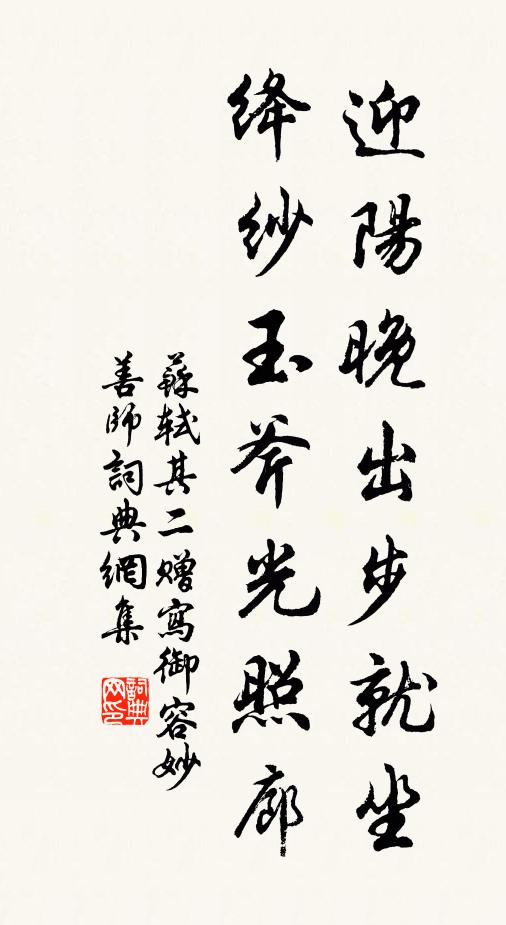 迎陽晚出步就坐
絳紗玉斧光照廊
蘇軾其二贈寫御容妙
善師詞典網集
詞典
网印